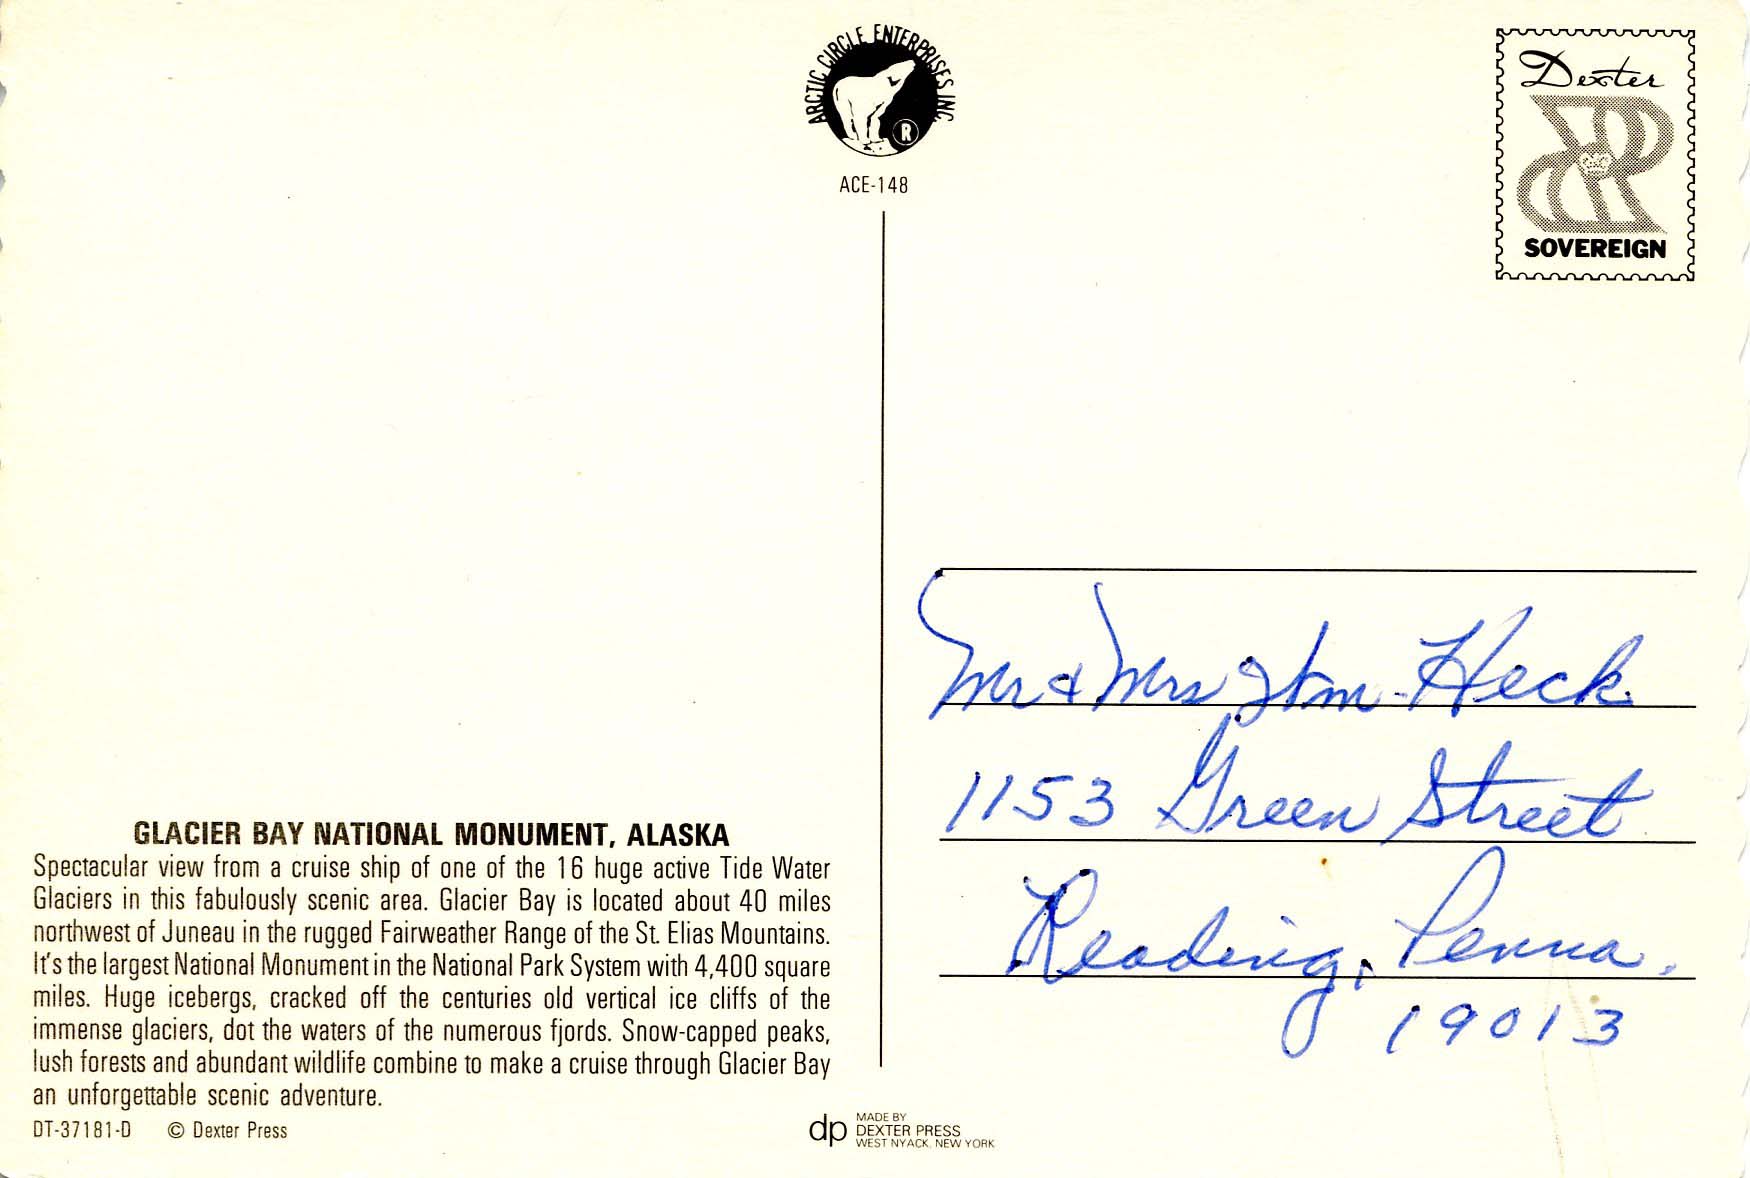 ARCTIC CIRCLE ENTERPRISES INC.
R
ACE-148
Dexter
SOVEREIGN
Mr & Mrs Wm. Heck
1153 Green Street
Reading, Penna.
19013
GLACIER BAY NATIONAL MONUMENT, ALASKA
Spectacular view from a cruise ship of one of the 16 huge active Tide Water
Glaciers in this fabulously scenic area. Glacier Bay is located about 40 miles
northwest of Juneau in the rugged Fairweather Range of the St. Elias Mountains.
It's the largest National Monument in the National Park System with 4,400 square
miles. Huge icebergs, cracked off the centuries old vertical ice cliffs of the
immense glaciers, dot the waters of the numerous fjords. Snow-capped peaks,
lush forests and abundant wildlife combine to make a cruise through Glacier Bay
an unforgettable scenic adventure.
DT-37181-D © Dexter Press
dp MADE BY
DEXTER PRESS
WEST NYACK, NEW YORK